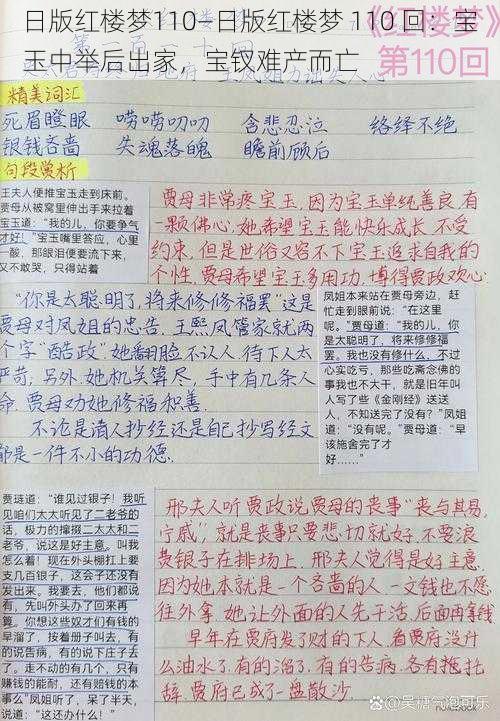 日版红楼梦110—日版红楼梦 110 回：宝
玉中举后出家，宝钗难产而亡
《红楼梦》
第110回
精美词汇
死眉瞪眼 唠唠叨叨 含悲忍泣 络绎不绝
银钱吝啬 失魂落魄 瞻前顾后
句段赏析
王夫人便推宝玉走到床前。
贾母从被窝里伸出手来拉着
宝玉道：“我的儿，你要争气
才好！”宝玉嘴里答应，心里
一酸，那眼泪便要流下来，
又不敢哭，只得站着
贾母非常疼宝玉，因为宝玉单纯善良，有
一颗佛心，她希望宝玉能快乐成长，不受
约束，但是世俗又容不下宝玉追求自我的
个性，贾母希望宝玉多用功，博得贾政欢心
“你是太聪明了，将来修修福罢”这是
贾母对凤姐的忠告，王熙凤管家就两
个字“酷政”她翻脸不认人，待下人太
严苛；另外，她机关算尽，手中有几条人
命，贾母劝她修福和善.
不论是请人抄经还是自己抄写经文
都是一件不小的功德.
凤姐本来站在贾母旁边，赶
忙走到眼前说：“在这里
呢。”贾母道：“我的儿，你
是太聪明了，将来修修福
罢。我也没有修什么，不过
心实吃亏，那些吃斋念佛的
事我也不大干，就是旧年叫
人写了些《金刚经》送送
人，不知送完了没有？”凤姐
道：“没有呢。”贾母道：“早
该施舍完了才
好……”
贾琏道：“谁见过银子！我听
见咱们太太听见了二老爷的
话，极力的撺掇二太太和二
老爷，说这是好主意。叫我
怎么着！现在外头棚杠上要
支几百银子，这会子还没有
发出来。我要去，他们都说
有，先叫外头办了回来再
算。你想这些奴才们有钱的
早溜了，按着册子叫去，有
的说告病，有的说下庄子去
了。走不动的有几个，只有
赚钱的能耐，还有赔钱的本
事么”凤姐听了，呆了半天，
说道：“这还办什么！”
邢夫人听贾政说贾母的丧事“丧与其易，
宁戚”，就是丧事只要悲切就好，不要浪
费银子在排场上，邢夫人觉得是好主意，
因为她本就是一个吝啬的人，一文钱也不愿
往外拿，她让外面的人先干活，后面再拿钱
早年在贾府发了财的下人，看贾府没什
么油水了，有的溜了，有的告病，各有推托
辞，贾府已成了一盘散沙.
@吴糖气泡可乐